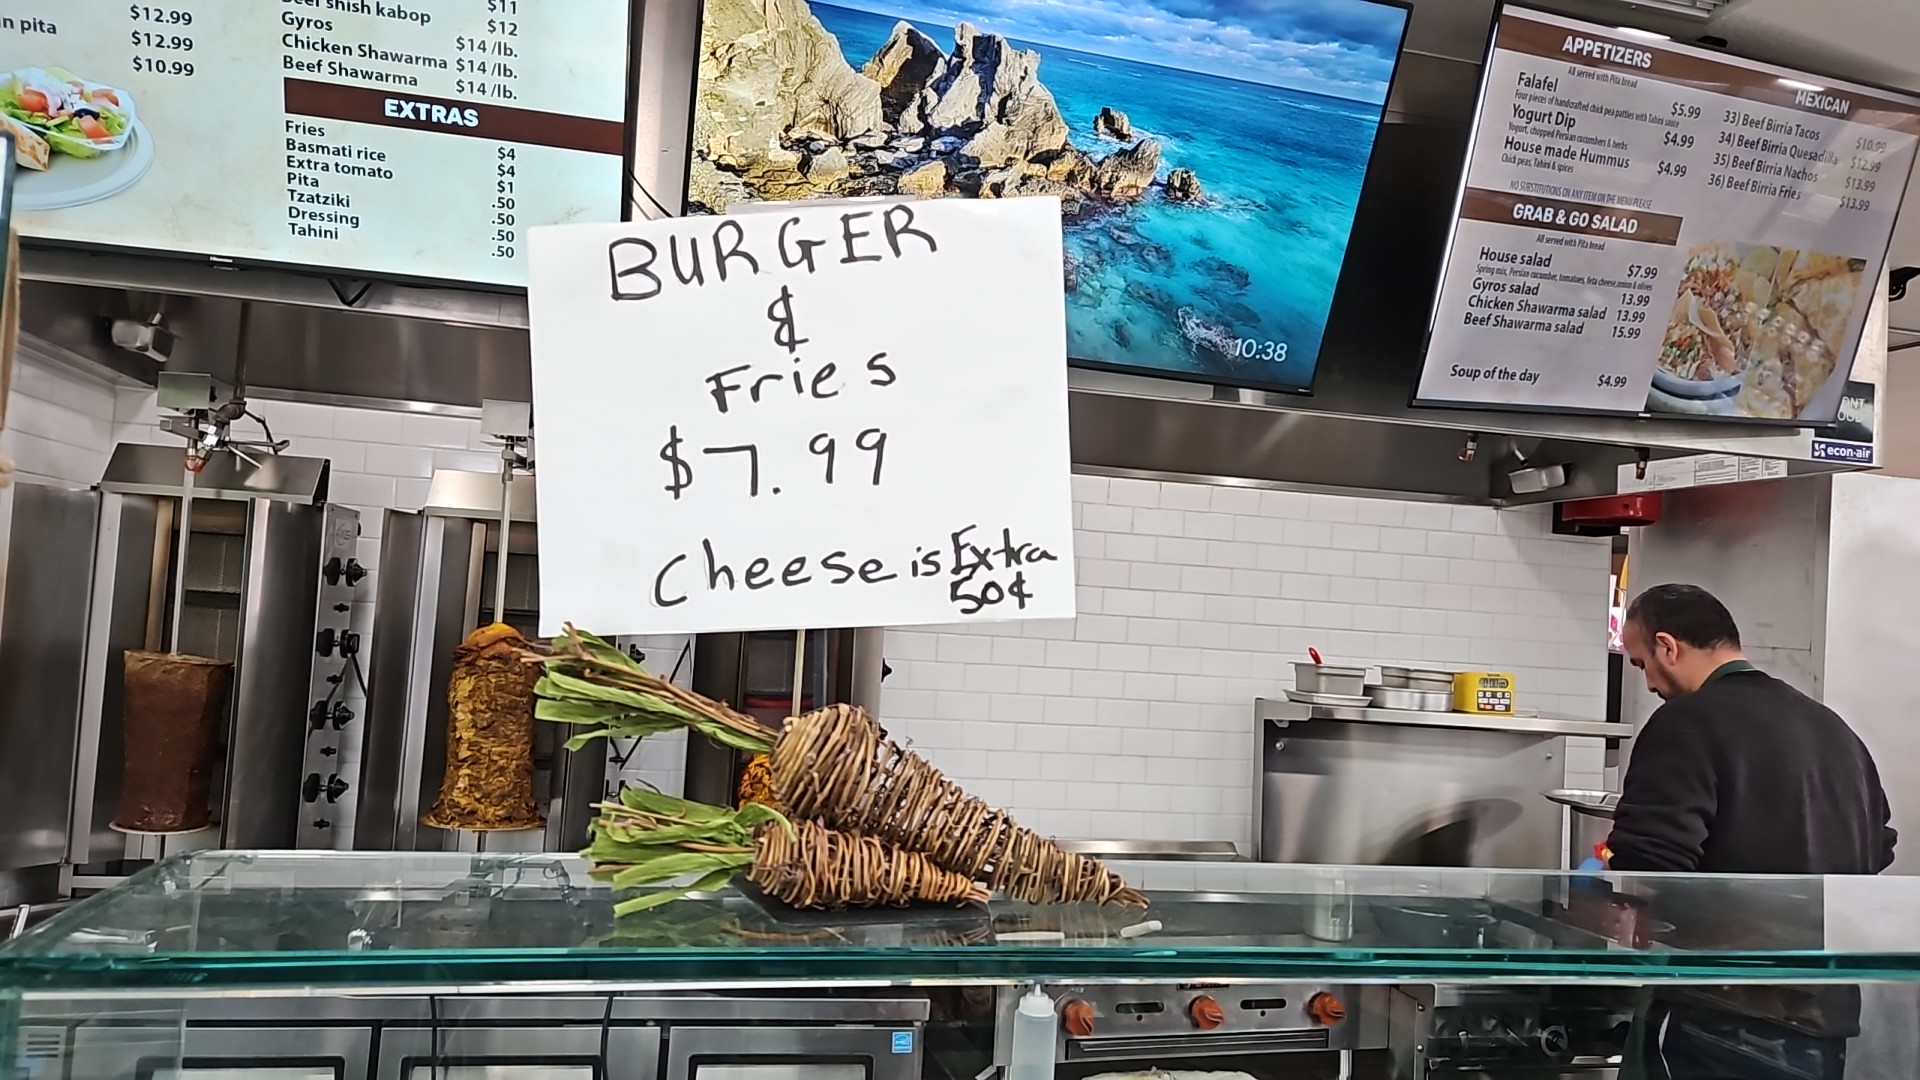 n pita
$12.99
$12.99
$10.99
shish kabop $11
Gyros $12
Chicken Shawarma $14 /lb.
Beef Shawarma $14 /lb.
$14 /lb.
EXTRAS
Fries $4
Basmati rice $4
Extra tomato $1
Pita .50
Tzatziki .50
Dressing .50
Tahini .50
BURGER
&
Fries
$7.99
Cheese is Extra
50¢
10:38
APPETIZERS
All served with Pita bread
Falafel $5.99
Four pieces of handcrafted chick pea patties with Tahini sauce
Yogurt Dip $4.99
Yogurt, chopped Persian cucumbers & herbs
House made Hummus $4.99
Chick peas, Tahini & spices
NO SUBSTITUTIONS ON ANY ITEM ON THE MENU PLEASE
GRAB & GO SALAD
All served with Pita bread
House salad $7.99
Spring mix, Persian cucumber, tomatoes, feta cheese, onion & olives
Gyros salad 13.99
Chicken Shawarma salad 13.99
Beef Shawarma salad 15.99
Soup of the day $4.99
MEXICAN
33) Beef Birria Tacos $10.99
34) Beef Birria Quesadilla $12.99
35) Beef Birria Nachos $13.99
36) Beef Birria Fries $13.99
econ-air